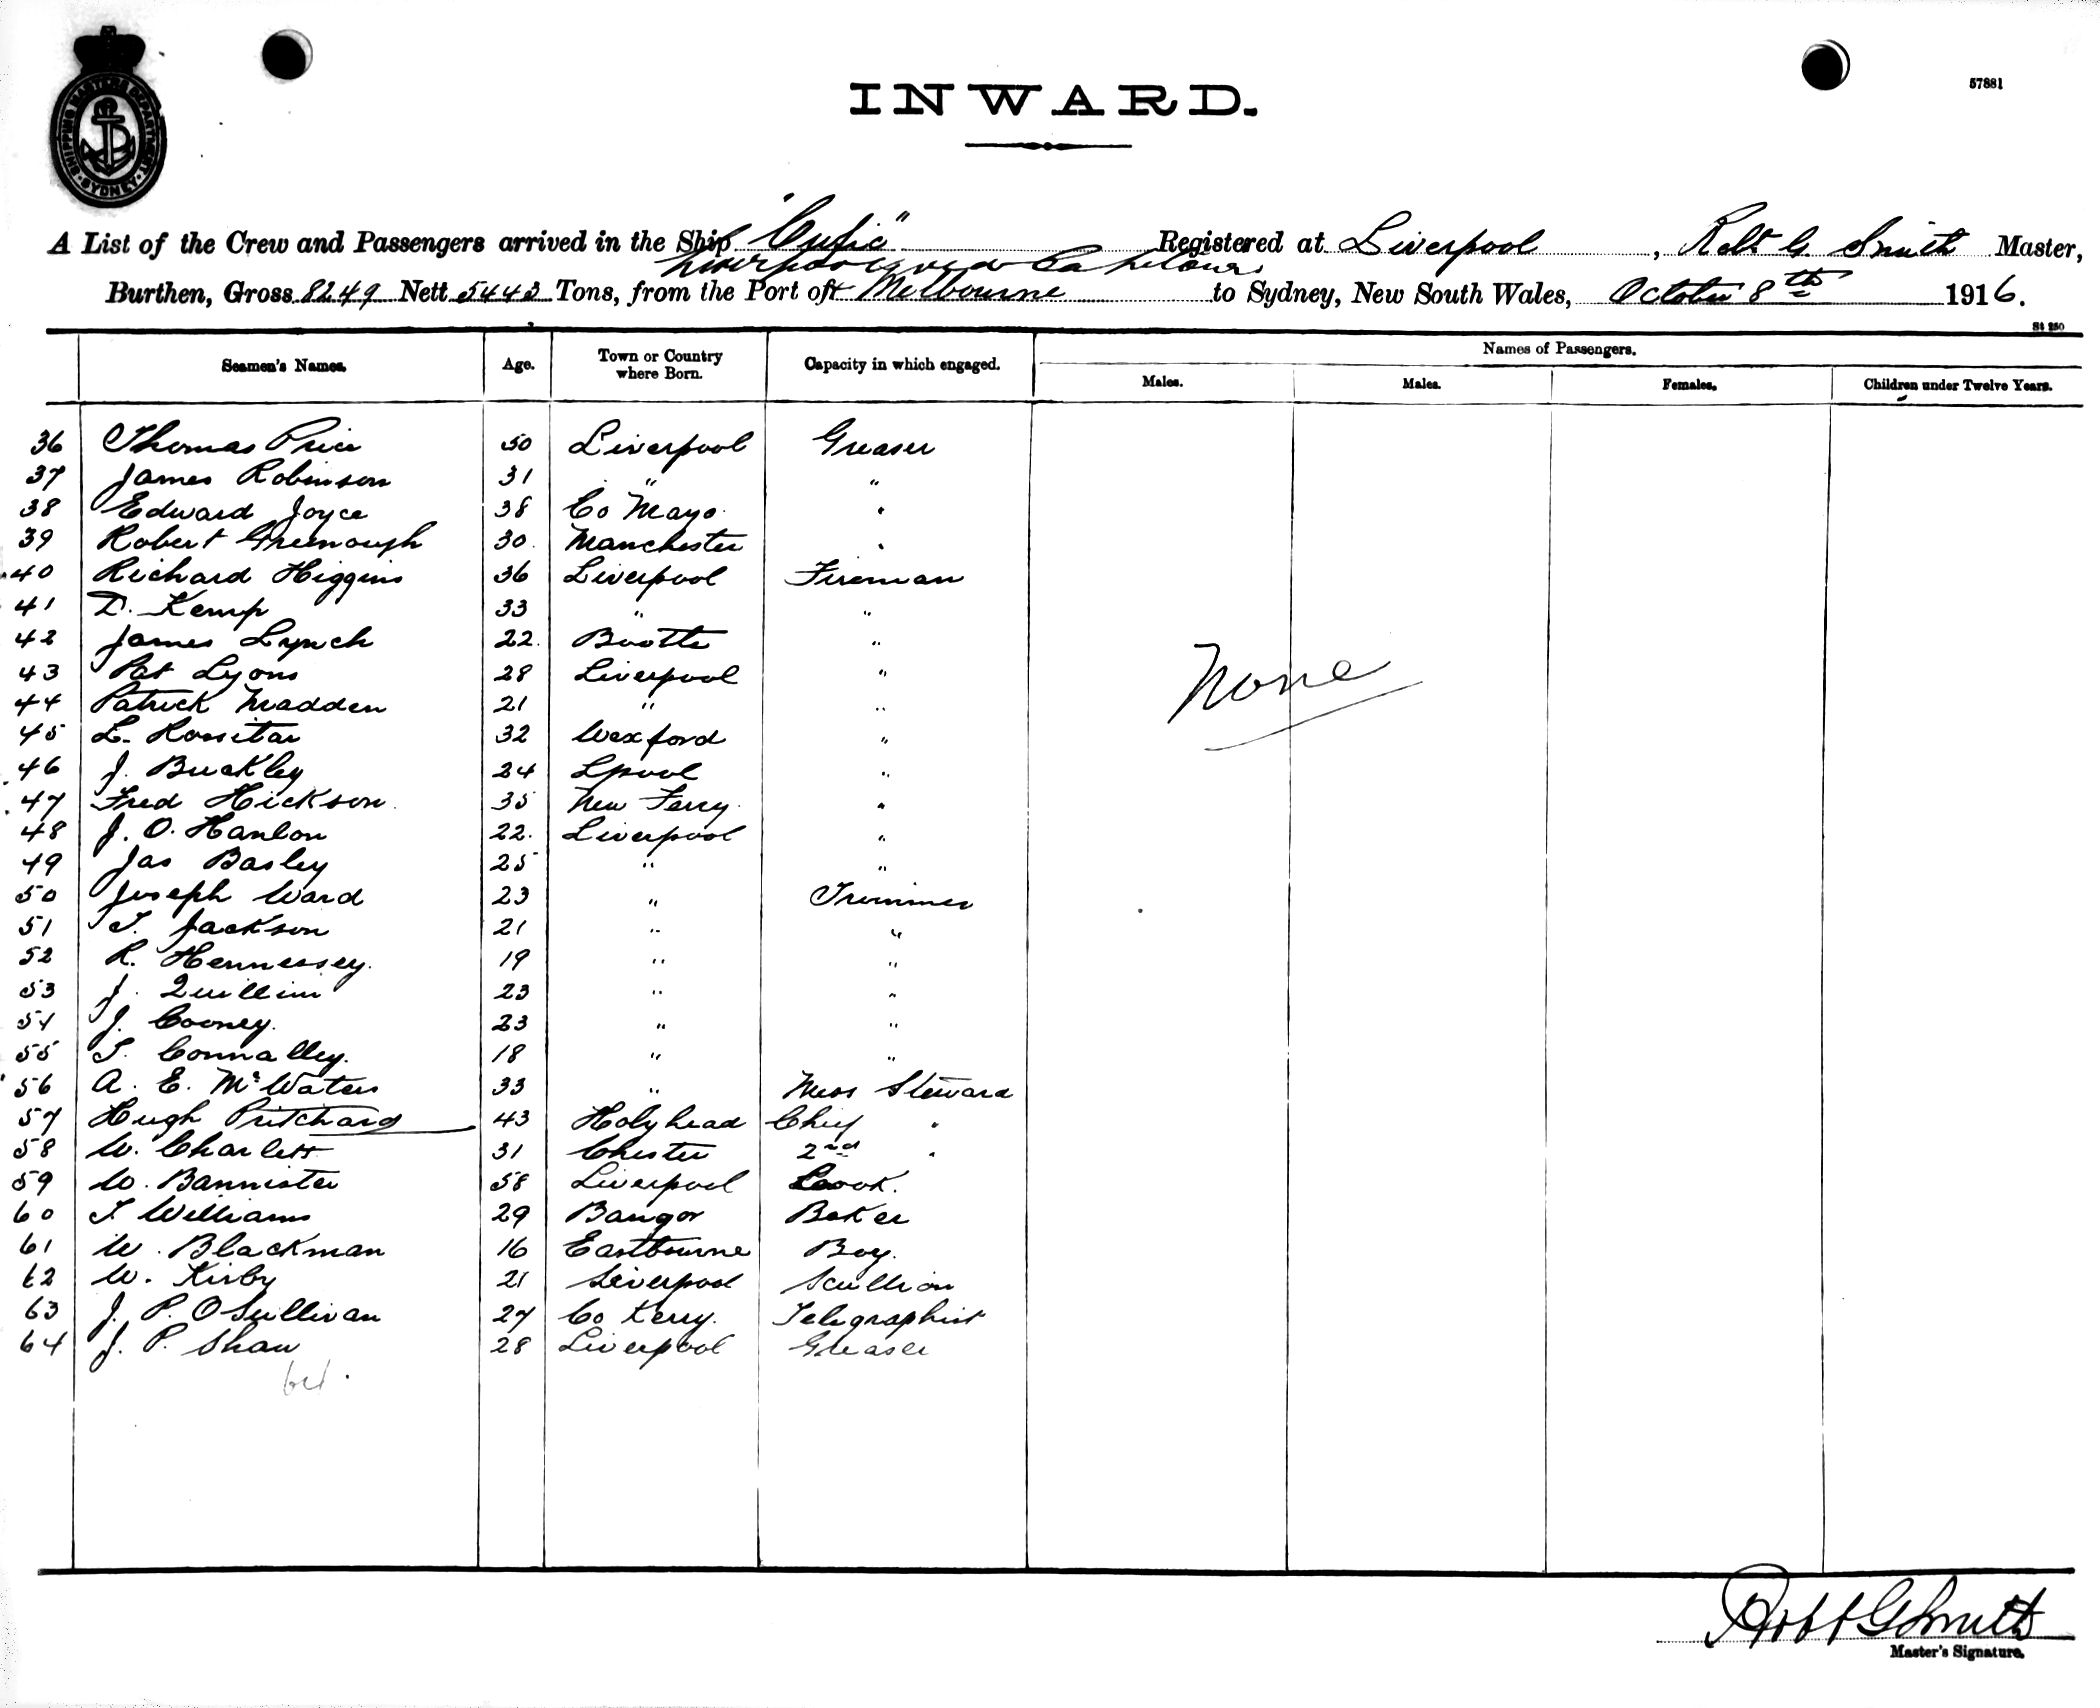 SHIPPING MASTERS DEPARTMENT
SYDNEY
57881
INWARD.
A List of the Crew and Passengers arrived in the Ship "Cufic" Registered at Liverpool, Robt G. Smith Master,
Liverpool
Burthen, Gross 8249 Nett 5443 Tons, from the Port of Melbourne to Sydney, New South Wales, October 8th 1916.
St 250
Seamen's Names. Age. Town or Country where Born. Capacity in which engaged. Names of Passengers.
Males. Males. Females. Children under Twelve Years.
36 Thomas Price 50 Liverpool Greaser
37 James Robinson 31 " "
38 Edward Joyce 38 Co Mayo "
39 Robert Greenough 30 Manchester "
40 Richard Higgins 36 Liverpool Fireman
41 D. Kemp 33 " "
42 James Lynch 22 Bootle "
43 Pat Lyons 28 Liverpool "
44 Patrick Madden 21 " "
45 L. Rossitar 32 Wexford "
46 J. Buckley 24 Lpool "
47 Fred Hickson 35 New Ferry "
48 J. O. Hanlon 22 Liverpool "
49 Jas Basley 25 " "
50 Joseph Ward 23 " Trimmer
51 T. Jackson 21 " "
52 R. Hennessey 19 " "
53 J. Quillin 23 " "
54 J. Cooney 23 " "
55 T. Connalley 18 " "
56 A. E. McWaters 33 " Mess Steward
57 Hugh Pritchard 43 Holyhead Chief "
58 W. Charlett 31 Chester 2nd "
59 W. Bannister 58 Liverpool Cook.
60 T Williams 29 Bangor Baker
61 W. Blackman 16 Eastbourne Boy.
62 W. Kirby 21 Liverpool Scullion
63 J. P. O Sullivan 27 Co Kerry. Telegraphist
64 J. P. Shaw 28 Liverpool Greaser
None
Robt G Smith
Master's Signature.